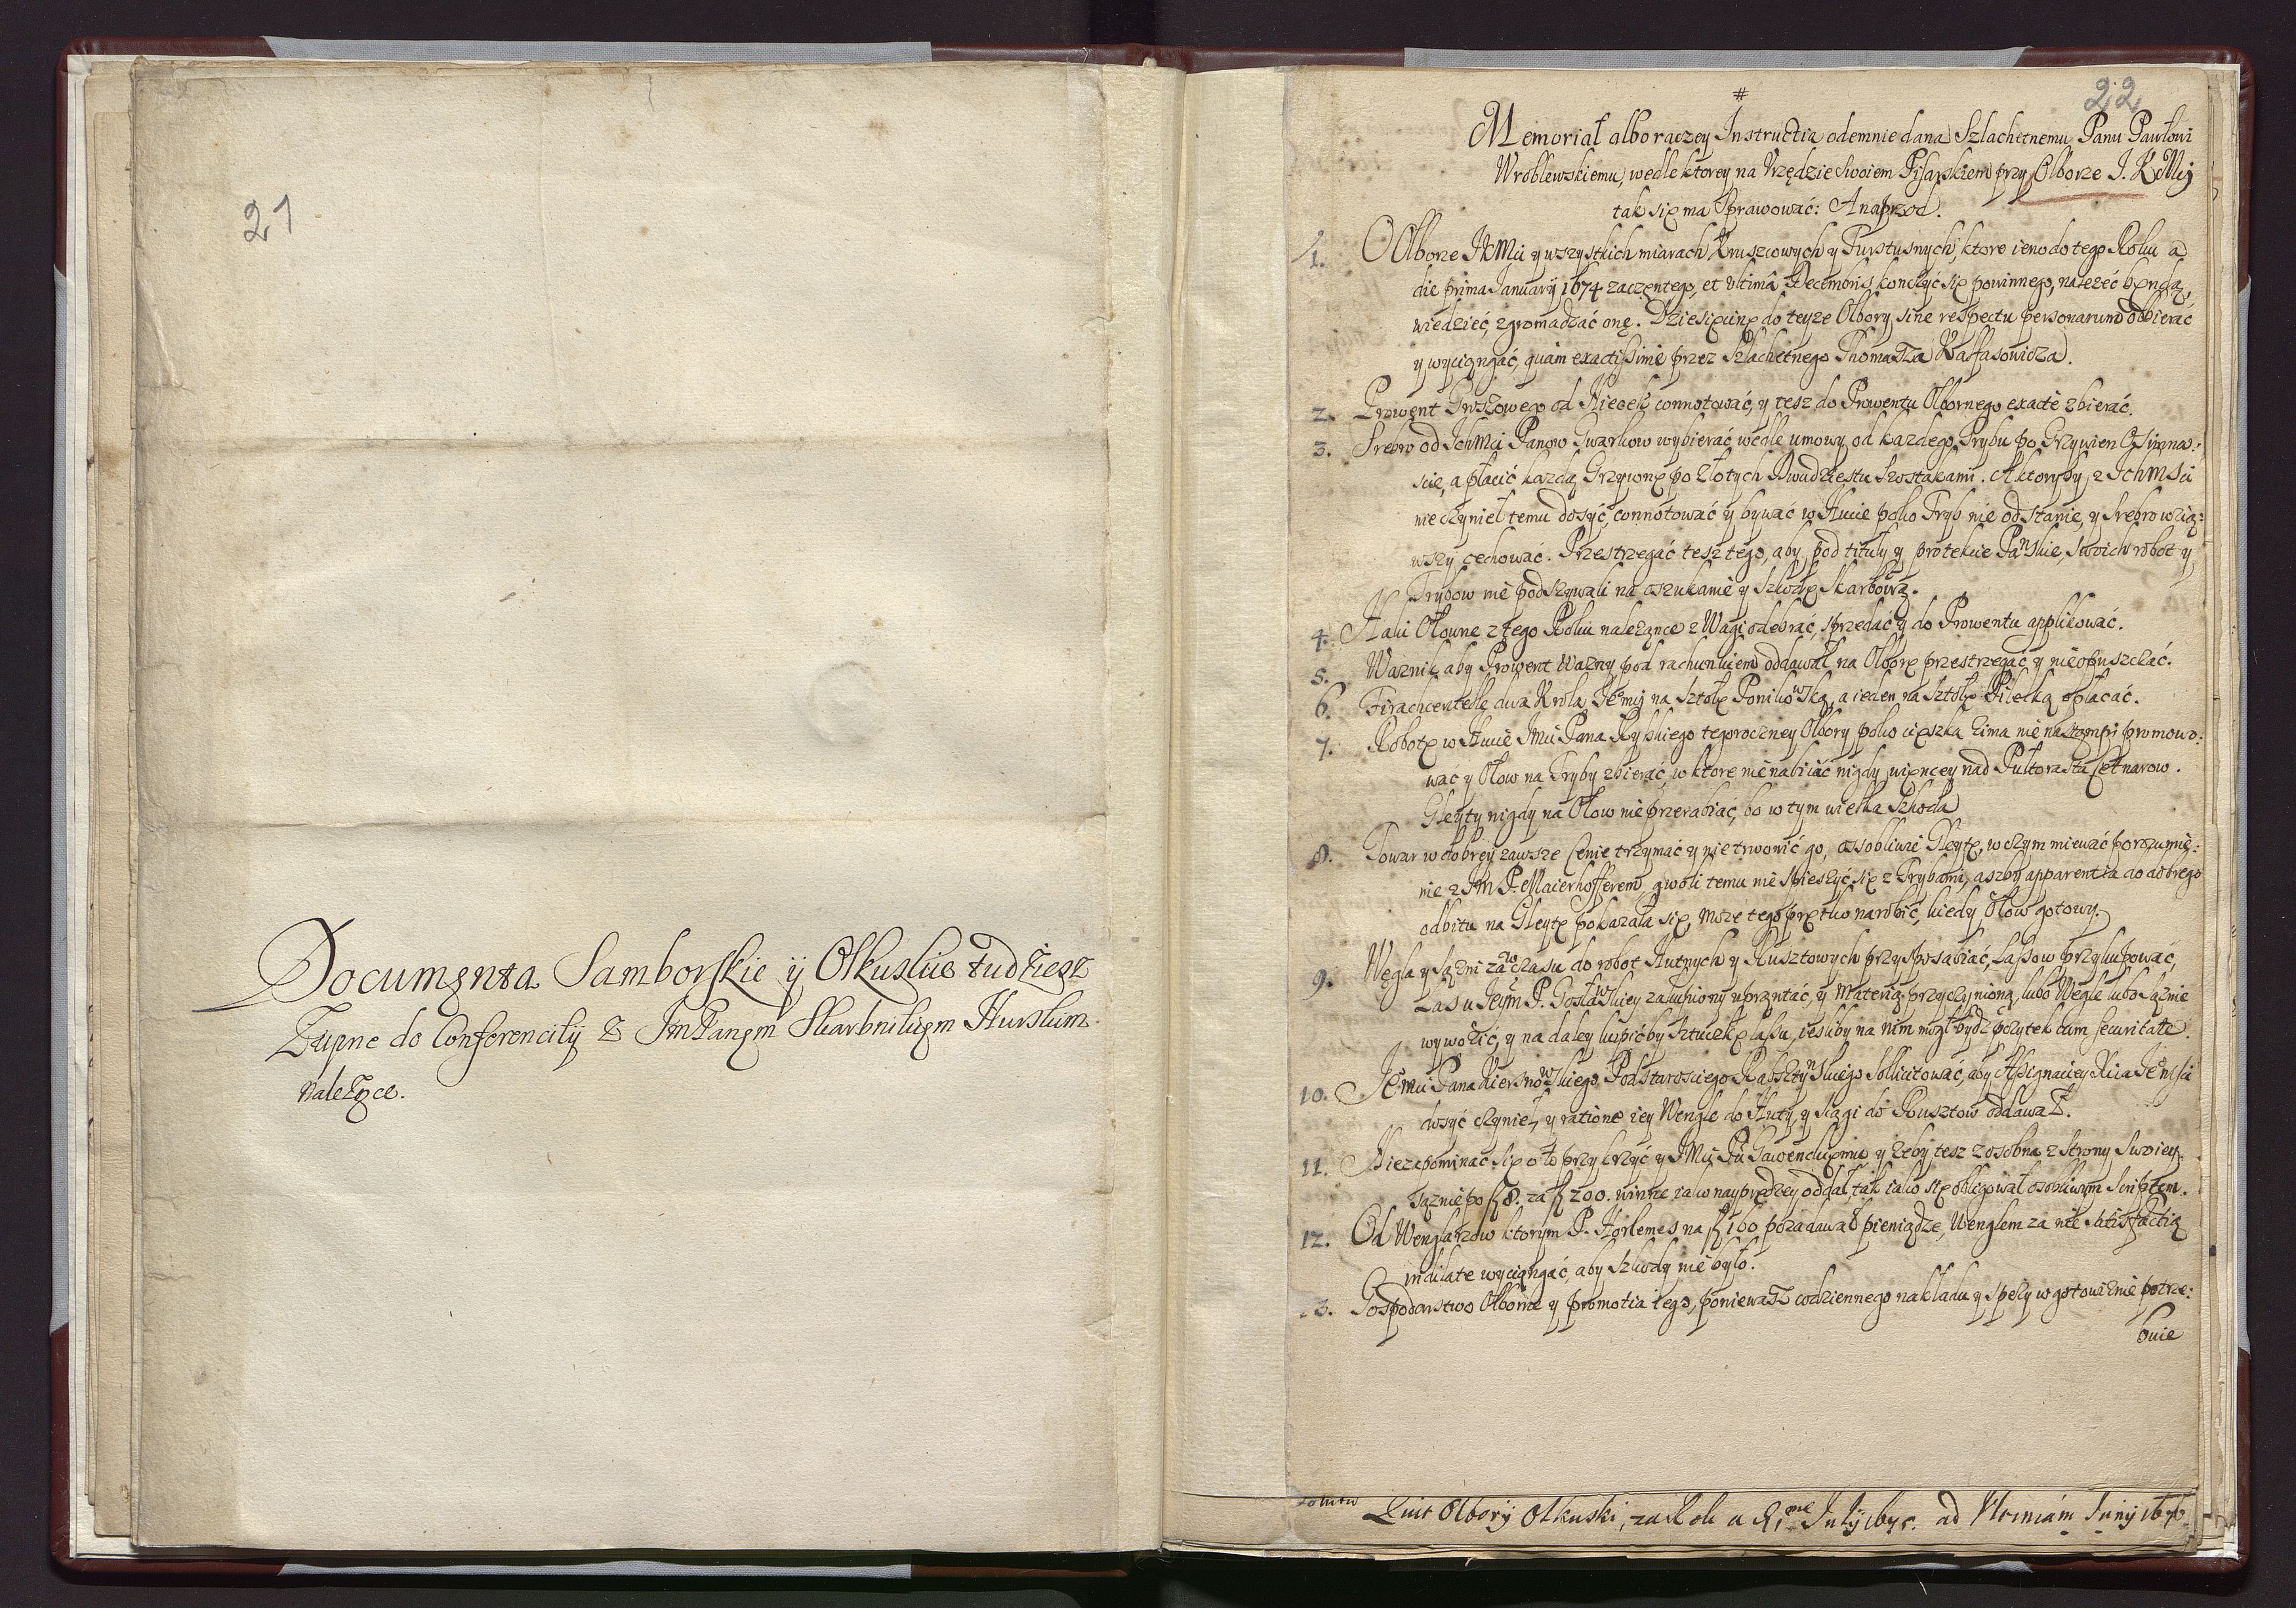 21
Documenta Samborskie ÿ Olkuskie tudziesz
Żupne do Conferencÿÿ z JmPanem Skarbnikiem Hurskim
należące.
22
#
Memoriał albo raczey Instructia odemnie dana Szlachetnemu Panu Pawłowi
Wroblewskiemu, wedle ktorey na Vrzędzie swoiem Pisarskiem przy Olborze J. K. Mcj
tak się ma sprawować: A naprzod.
1. O Olborze JKMci y wszystkich miarach Kruszcowych y ktore ieno do tego Roku a
die prima January 1674 zaczętego, et vltima Decembris konczyć się powinnego, należeć będą,
wiedzieć, zgromadzać onę. Dziesięcinę do teyze Olbory sine respectu personarum odbierać
y wyciągać, quam exactissime przez Szlachetnego Thomasza Raffasowicza.
2. Prowent Groszowego od Niecek connotować, y tesz do Prowentu Olbornego exacte zbierać.
3. Srebro od Ichmci Panow Gwarkow wybierać wedle umowy, od kazdego Trybu po Grzywien Osimna:
scie, a płacić kazdą Grzywnę po Złotych Dwudziestu Szostakami. A ktoryby z Ichmsci
nie czynieł temu dosyć, connotować y bywać w Hucie poko Tryb nie odstanie, y Srebro wzią:
wszy cechować. Przestrzegać tesz tego, aby pod tituły y protekcie Pańskie, swoich robot y
Trybow nie podszywali na oszukanie y Szkodę Skarbową.
4. Haki Ołowne z tego Roku nalezące z Wagi odebrać, sprzedać y do Prowentu applikować.
5. Waznik aby Prowent Wazny pod rachunkiem oddawał na Olborę przestrzegać y nieopuszczać.
6. dwa Krola Jemci na Sztołę Ponikowską, a ieden na Sztołę Pilecką opłacać.
7. Robotę w Hucie Jmci Pana Rybskiego tegoroczney Olbory poko cięszka zima nie nastąmpi promowo:
wać y Ołow na Tryby zbierać, w ktore nie nabiiać nigdy więncey nad Pułtorasta Cetnarow.
Gleyty nigdy na Ołow nie przerabiać, bo w tym wielka Szkoda
8. Towar w dobrey zawsze Cenie trzymać y nie trwonić go, osobliwie Gleytę, w czym miewać porozumie:
nie z Jm P. Maierhofferem, gwoli temu nie spieszyć się z Trybami, aszby apparentia do dobrego
odbitu na Gleytę pokazała się, może tego prętko narobić, kiedy Ołow gotowy.
9. Węgla y Sązni zawczasu do robot Hutnych y Rusztowych przysposabiać, Lassow przykupować,
Lasu Jeym P. Gosławskiey zakupiony uprzątać, y Materią przyczynioną, lubo Węgle lubo Sąznie
wywozić, y na daley kupić by Sztuczkę lasu, iesliby na nim mogł bydz pozytek cum securitate.
10. Jemci Pana Kiersnowskiego Podstarosciego Rabsztyńskiego sollicitować, aby Assignaciey Xcia Jemsci
dosyć czynieł, y ratione iey Wengle do Huty, y siągi do Rousztow oddawał.
11. Niezapominać się o to przykrzyć y JMci Pu y zeby tesz zosobna z strony swoiey
Sąznie po fl 8. za fl 200. winne iako nayprędzey oddał, tak iako się obligował osobliwym scriptem.
12. Od Wenglarzow ktorym P. Horlemes na fl 160 pozadawał pieniądze, Wenglem za nie satisfactią
indilate wyciągać, aby Szkody nie było.
13. Gospodarstwo Olborne y promotia iego, poniewasz codziennego nakładu y spezy w gotowiznie potrze:
buie
Quit Olbory Olkuski, za Rok a 1me July 1675. ad Vltimam Juny 1676